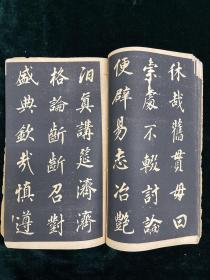 休哉舊貫毋曰
索處不輟討論
便辟易志冶艷
汨真講筵濟濟
格論斷斷召對
盛典欽哉慎遵